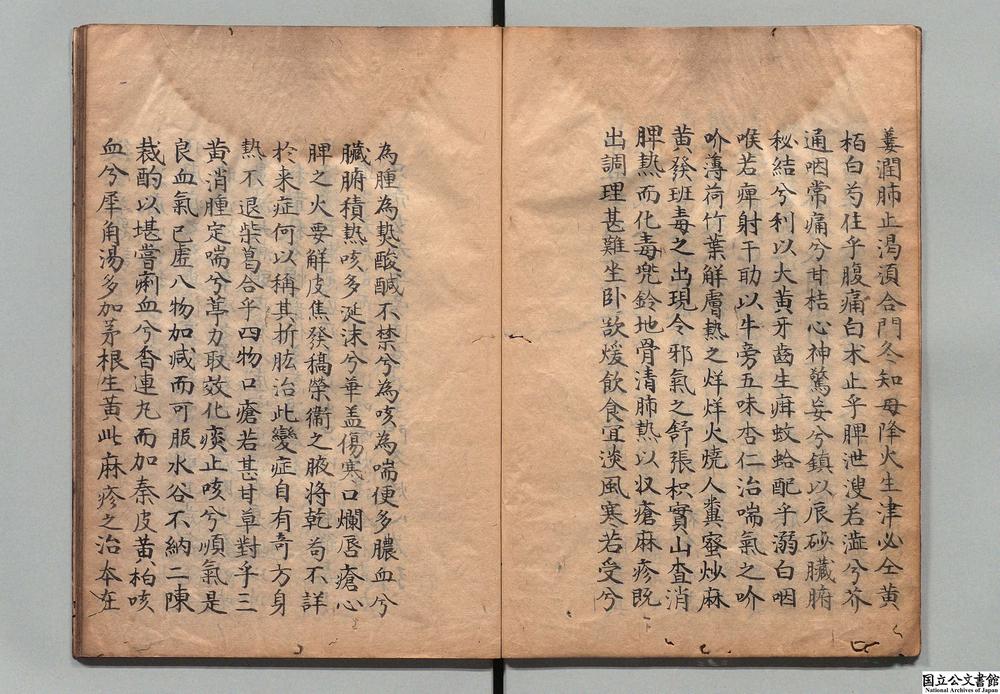 蔞潤肺止渴湏合門冬知母降火生津必仝黃
栢白芍住乎腹痛白朮止乎脾泄溲若澁兮芥
通咽常痛兮甘桔心神驚妄兮鎮以辰砂臟腑
秘結兮利以大黃牙齒生疳蚊蛤配乎溺白咽
喉若痺射干助以牛旁五味杏仁治喘氣之吤
吤薄荷竹葉解膚熱之烊烊火燒人糞蜜炒麻
黃發班毒之出現令邪氣之舒張枳實山查消
脾熱而化毒兠鈴地骨清肺熱以収瘡麻疹既
出調理甚難坐卧欲煖飲食宜淡風寒若受兮
為腫為㷟酸醎不禁兮為咳為喘便多膿血兮
臟腑積熱咳多涎沫兮華盖傷寒口爛唇瘡心
脾之火要解皮焦發稿榮衛之腋將乾苟不詳
於来症何以稱其折肱治此變症自有奇方身
熱不退柴葛合乎四物口瘡若甚甘草對乎三
黃消腫定喘兮葶力取效化痰止咳兮順氣是
良血氣已虛八物加减而可服水谷不納二陳
裁酌以堪嘗痢血兮香連丸而加秦皮黃柏咳
血兮犀角湯多加茅根生黃此麻疹之治夲在
国立公文書館
National Archives of Japan